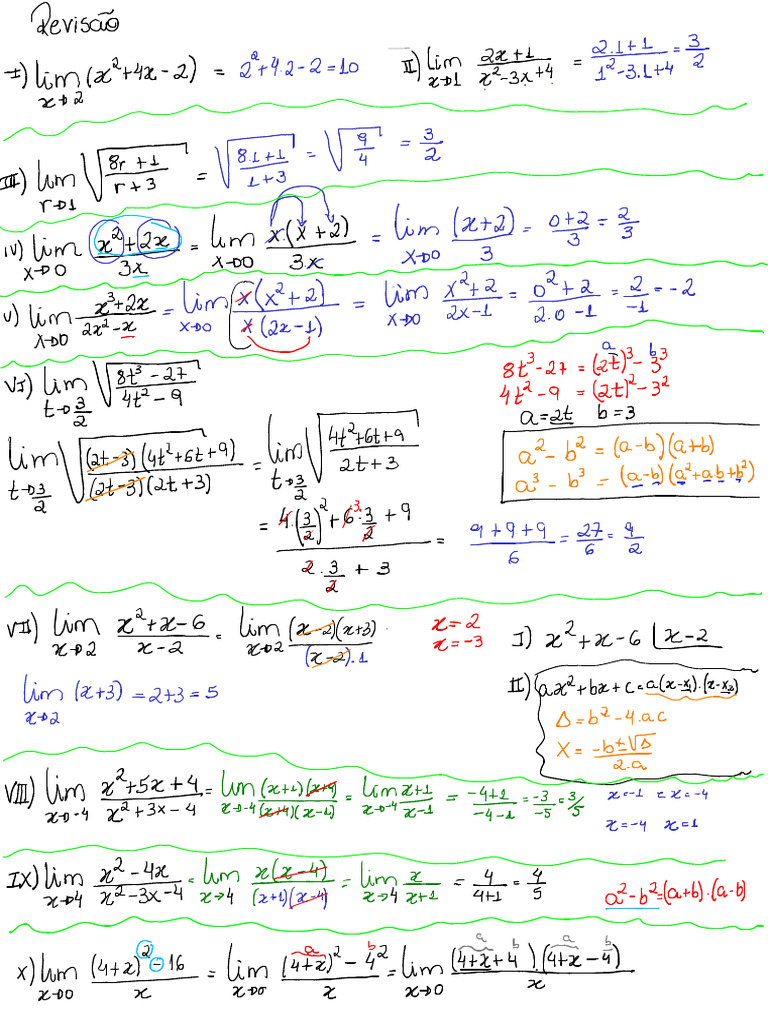 Revisão
I) lim x→2 (x²+4x-2) = 2²+4.2-2=10
II) lim x→1 (2x+1)/(x²-3x+4) = (2.1+1)/(1²-3.1+4) = 3/2
III) lim r→1 √((8r+1)/(r+3)) = √((8.1+1)/(1+3)) = √(9/4) = 3/2
IV) lim x→0 (x²+2x)/(3x) = lim x→0 (x.(x+2))/(3.x) = lim x→0 (x+2)/3 = (0+2)/3 = 2/3
V) lim x→0 (x³+2x)/(2x²-x) = lim x→0 (x(x²+2))/(x(2x-1)) = lim x→0 (x²+2)/(2x-1) = (0²+2)/(2.0-1) = 2/-1 = -2
VI) lim t→3/2 √((8t³-27)/(4t²-9))
a b
8t³-27 = (2t)³-3³
4t²-9 = (2t)²-3²
a=2t b=3
a²-b² = (a-b).(a+b)
a³-b³ = (a-b)(a²+ab+b²)
lim t→3/2 √(((2t-3)(4t²+6t+9))/((2t-3)(2t+3))) = lim t→3/2 √((4t²+6t+9)/(2t+3))
= (4.(3/2)²+6.3/2+9)/(2.3/2+3) = (9+9+9)/6 = 27/6 = 9/2
3
VII) lim x→2 (x²+x-6)/(x-2) = lim x→2 ((x-2)(x+3))/((x-2).1)
x=2
x=-3
I) x²+x-6 |x-2
lim x→2 (x+3) = 2+3 = 5
II) ax²+bx+c = a(x-x₁).(x-x₂)
Δ = b²-4.ac
X = (-b±√Δ)/(2.a)
VIII) lim x→-4 (x²+5x+4)/(x²+3x-4) = lim x→-4 ((x+1)(x+4))/((x+4)(x-1)) = lim x→-4 (x+1)/(x-1) = (-4+1)/(-4-1) = -3/-5 = 3/5
x=-1 = x=-4
x=-4 x=1
IX) lim x→4 (x²-4x)/(x²-3x-4) = lim x→4 (x(x-4))/((x+1)(x-4)) = lim x→4 x/(x+1) = 4/(4+1) = 4/5
a²-b²=(a+b).(a-b)
a b a b a b
X) lim x→0 ((4+x)²-16)/x = lim x→0 ((4+x)²-4²)/x = lim x→0 ((4+x+4).(4+x-4))/x